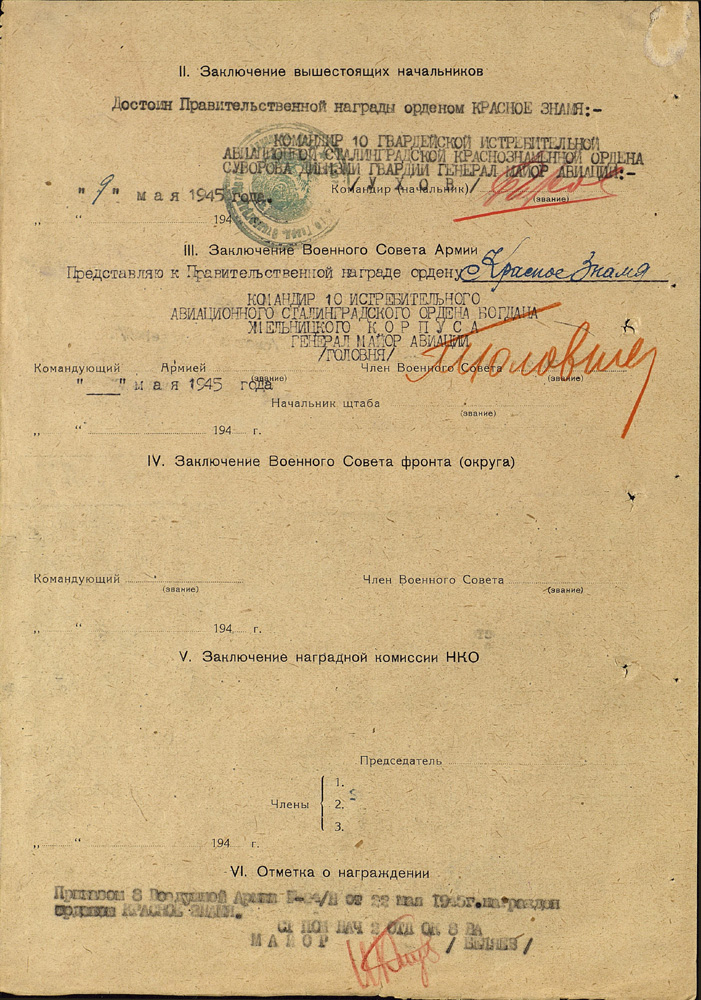 II. Заключение вышестоящих начальников
Достоин Правительственной награды орденом КРАСНОЕ ЗНАМЯ:-
КОМАНДИР 10 ГВАРДЕЙСКОЙ ИСТРЕБИТЕЛЬНОЙ
АВИАЦИОННОЙ СТАЛИНГРАДСКОЙ КРАСНОЗНАМЕННОЙ ОРДЕНА
СУВОРОВА ДИВИЗИИ ГВАРДИИ ГЕНЕРАЛ МАЙОР АВИАЦИИ:-
Командир (начальник)
"9" мая 1945 года.
(звание)
„ “ 194
III. Заключение Военного Совета Армии
Представляю к Правительственной награде ордену Красное Знамя
КОМАНДИР 10 ИСТРЕБИТЕЛЬНОГО
АВИАЦИОННОГО СТАЛИНГРАДСКОГО ОРДЕНА БОГДАНА
ХМЕЛЬНИЦКОГО КОРПУСА
ГЕНЕРАЛ МАЙОР АВИАЦИИ
/ГОЛОВНЯ/ Головня
Командующий Армией (звание) Член Военного Совета (звание)
"___" мая 1945 года
Начальник штаба (звание)
„ “ 194 г.
IV. Заключение Военного Совета фронта (округа)
Командующий (звание) Член Военного Совета (звание)
„ “ 194 г.
V. Заключение наградной комиссии НКО
Председатель
Члены
1.
2.
3.
„ “ 194 г.
VI. Отметка о награждении
Приказом 8 Воздушной Армии от 22 мая 1945г. награжден
орденом КРАСНОЕ ЗНАМЯ.
СТ ПОМ НАЧ 2 ОТД ОК 8 ВА
МАЙОР /БЕЛЯЕВ/